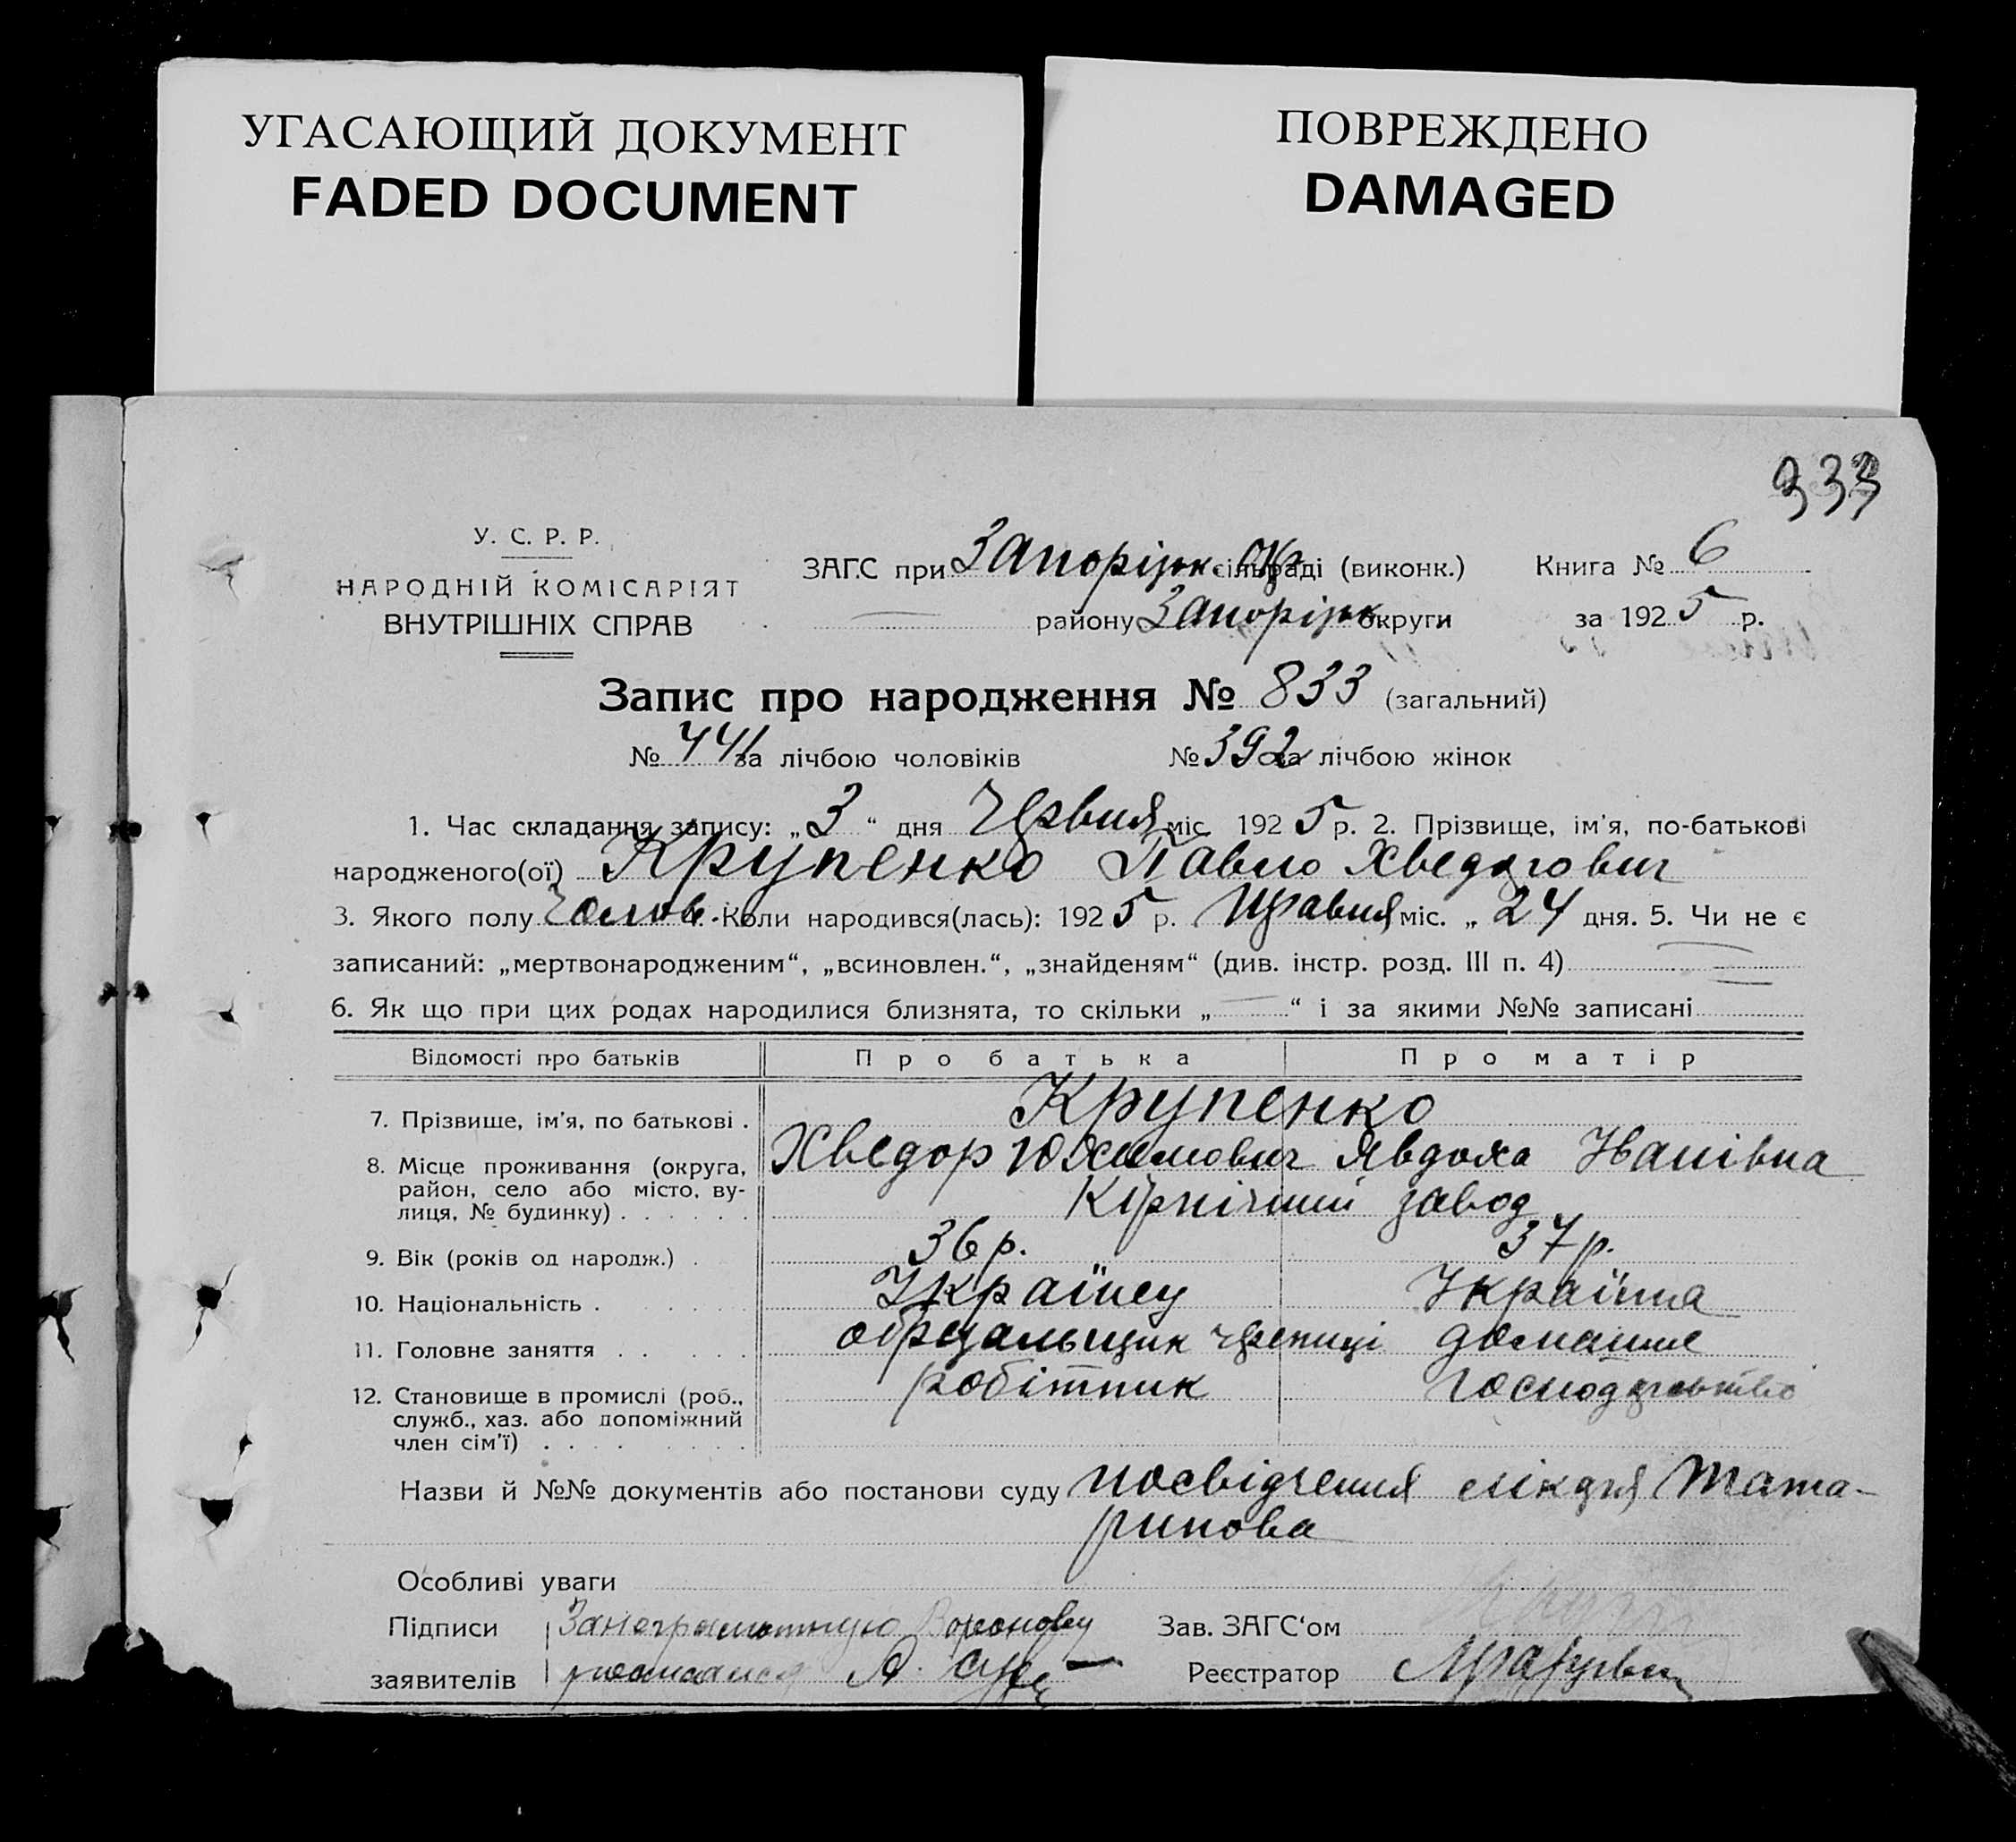 УГАСАЮЩИЙ ДОКУМЕНТ
FADED DOCUMENT
ПОВРЕЖДЕНО
DAMAGED
333
У. С. Р. Р.
НАРОДНІЙ КОМІСАРІЯТ
ВНУТРІШНІХ СПРАВ
ЗАГС при Запоріжк. Окр сільраді (виконк.) Книга № 6
району Запоріжк округи за 1925 р.
Запис про народження № 833 (загальний)
№ 441 за лічбою чоловіків № 392 за лічбою жінок
1. Час складання запису: „3“ дня Червня міс. 1925 р. 2. Прізвище, ім'я, по-батькові
народженого(ої) Крупенко Павло Хведорович
3. Якого полу Чолов. Коли народився(лась): 1925 р. Травня міс. „24 дня. 5. Чи не є
записаний: „мертвонародженим“, „всиновлен.“, „знайденям“ (див. інстр. розд. III п. 4)
6. Як що при цих родах народилися близнята, то скільки „ “ і за якими №№ записані
Відомості про батьків Про батька Про матір
7. Прізвище, ім'я, по батькові . Крупенко
Хведор Юхимович Явдоха Іванівна
8. Місце проживання (округа,
район, село або місто, ву-
лиця, № будинку) . . . . . . Кірпічний завод
9. Вік (років од народж.) . 36 р. 37 р.
10. Національність . . . . . Українец Українка
11. Головне заняття . . . . . черепиці домашнє
12. Становище в промислі (роб.,
служб., хаз. або допоміжний
член сім'ї) . . . . . . . . робітник господарство
Назви й №№ документів або постанови суду посвідчення лікаря Тата-
ринова
Особливі уваги
Підписи Занеграмотную
заявителів А.
Зав. ЗАГС'ом
Реєстратор